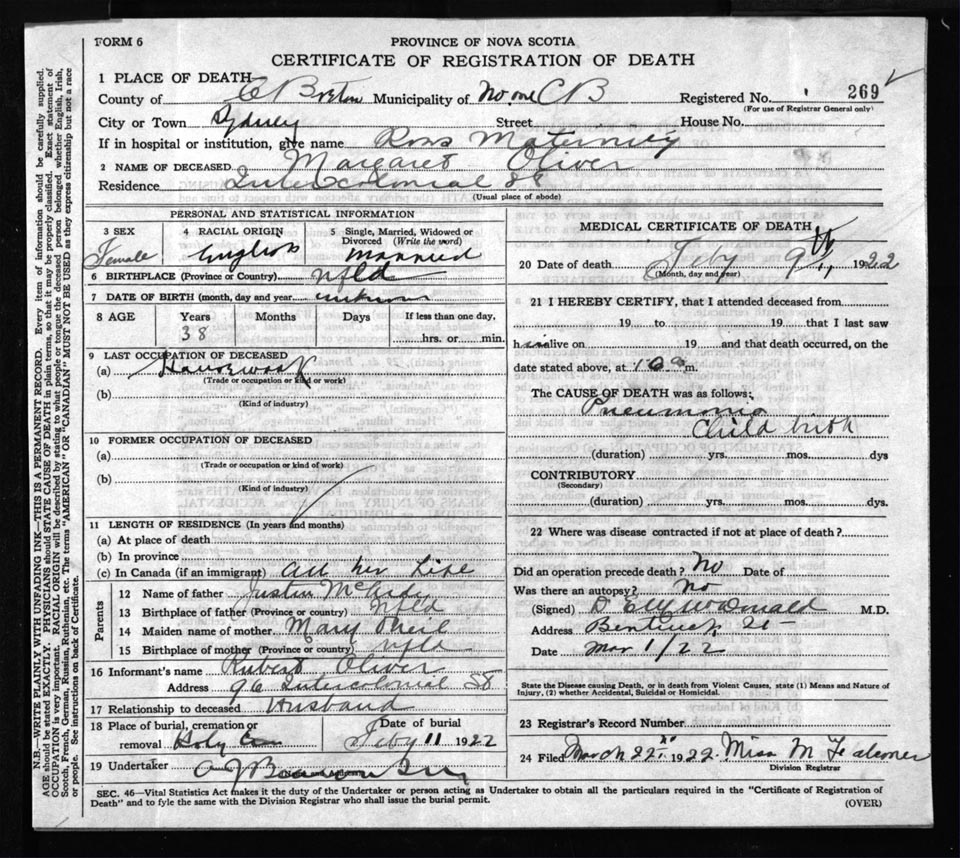 FORM 6
PROVINCE OF NOVA SCOTIA
CERTIFICATE OF REGISTRATION OF DEATH
1 PLACE OF DEATH
County of C Breton Municipality of No one CB Registered No. 269
(For use of Registrar General only)
City or Town Sydney Street House No.
If in hospital or institution, give name Ross Maternity
2 NAME OF DECEASED Margaret Oliver
Residence Intercolonial St
(Usual place of abode)
PERSONAL AND STATISTICAL INFORMATION
3 SEX Female
4 RACIAL ORIGIN English
5 Single, Married, Widowed or Divorced (Write the word) Married
6 BIRTHPLACE (Province or Country) Nfld
7 DATE OF BIRTH (month, day and year) unknown
8 AGE Years Months Days If less than one day,
38 hrs. or min.
9 LAST OCCUPATION OF DECEASED
(a) Housework
(Trade or occupation or kind or work)
(b)
(Kind of industry)
10 FORMER OCCUPATION OF DECEASED
(a)
(Trade or occupation or kind of work)
(b)
(Kind of industry)
11 LENGTH OF RESIDENCE (In years and months)
(a) At place of death
(b) In province
(c) In Canada (if an immigrant) all her Life
Parents
12 Name of father Justin
13 Birthplace of father (Province or country) Nfld
14 Maiden name of mother Mary
15 Birthplace of mother (Province or country) nfld
16 Informant's name Rubert Oliver
Address 96 Intercolonial St
17 Relationship to deceased Husband
18 Place of burial, cremation or removal Holy Date of burial Feby 11 1922
19 Undertaker
MEDICAL CERTIFICATE OF DEATH
20 Date of death Feby 9th 1922
(Month, day and year)
21 I HEREBY CERTIFY, that I attended deceased from
19 to 19 that I last saw
h alive on 19 and that death occurred, on the
date stated above, at 10 a m.
The CAUSE OF DEATH was as follows:
Pneumonia
Child birth
(duration) yrs. mos. dys
CONTRIBUTORY
(Secondary)
(duration) yrs. mos. dys.
22 Where was disease contracted if not at place of death?
Did an operation precede death? No Date of
Was there an autopsy? No
(Signed) McDonald M.D.
Address Bentinck St
Date Mar 1/22
State the Disease causing Death, or in death from Violent Causes, state (1) Means and Nature of
Injury, (2) whether Accidental, Suicidal or Homicidal.
23 Registrar's Record Number
24 Filed March 22 1922 Miss M Falconer
Division Registrar
SEC. 46—Vital Statistics Act makes it the duty of the Undertaker or person acting as Undertaker to obtain all the particulars required in the "Certificate of Registration of
Death" and to fyle the same with the Division Registrar who shall issue the burial permit. (OVER)
N.B.—WRITE PLAINLY WITH UNFADING INK—THIS IS A PERMANENT RECORD. Every item of information should be carefully supplied.
AGE should be stated EXACTLY. PHYSICIANS should STATE CAUSE OF DEATH in plain terms, so that it may be properly classified. Exact statement of
OCCUPATION is very important. RACIAL ORIGIN will be described by stating to what people or tongue the deceased person belonged, whether English, Irish,
Scotch, French, German, Russian, Ruthenian, etc. The terms "AMERICAN" OR "CANADIAN" MUST NOT BE USED as they express citizenship but not a race
or people. See instructions on back of Certificate.